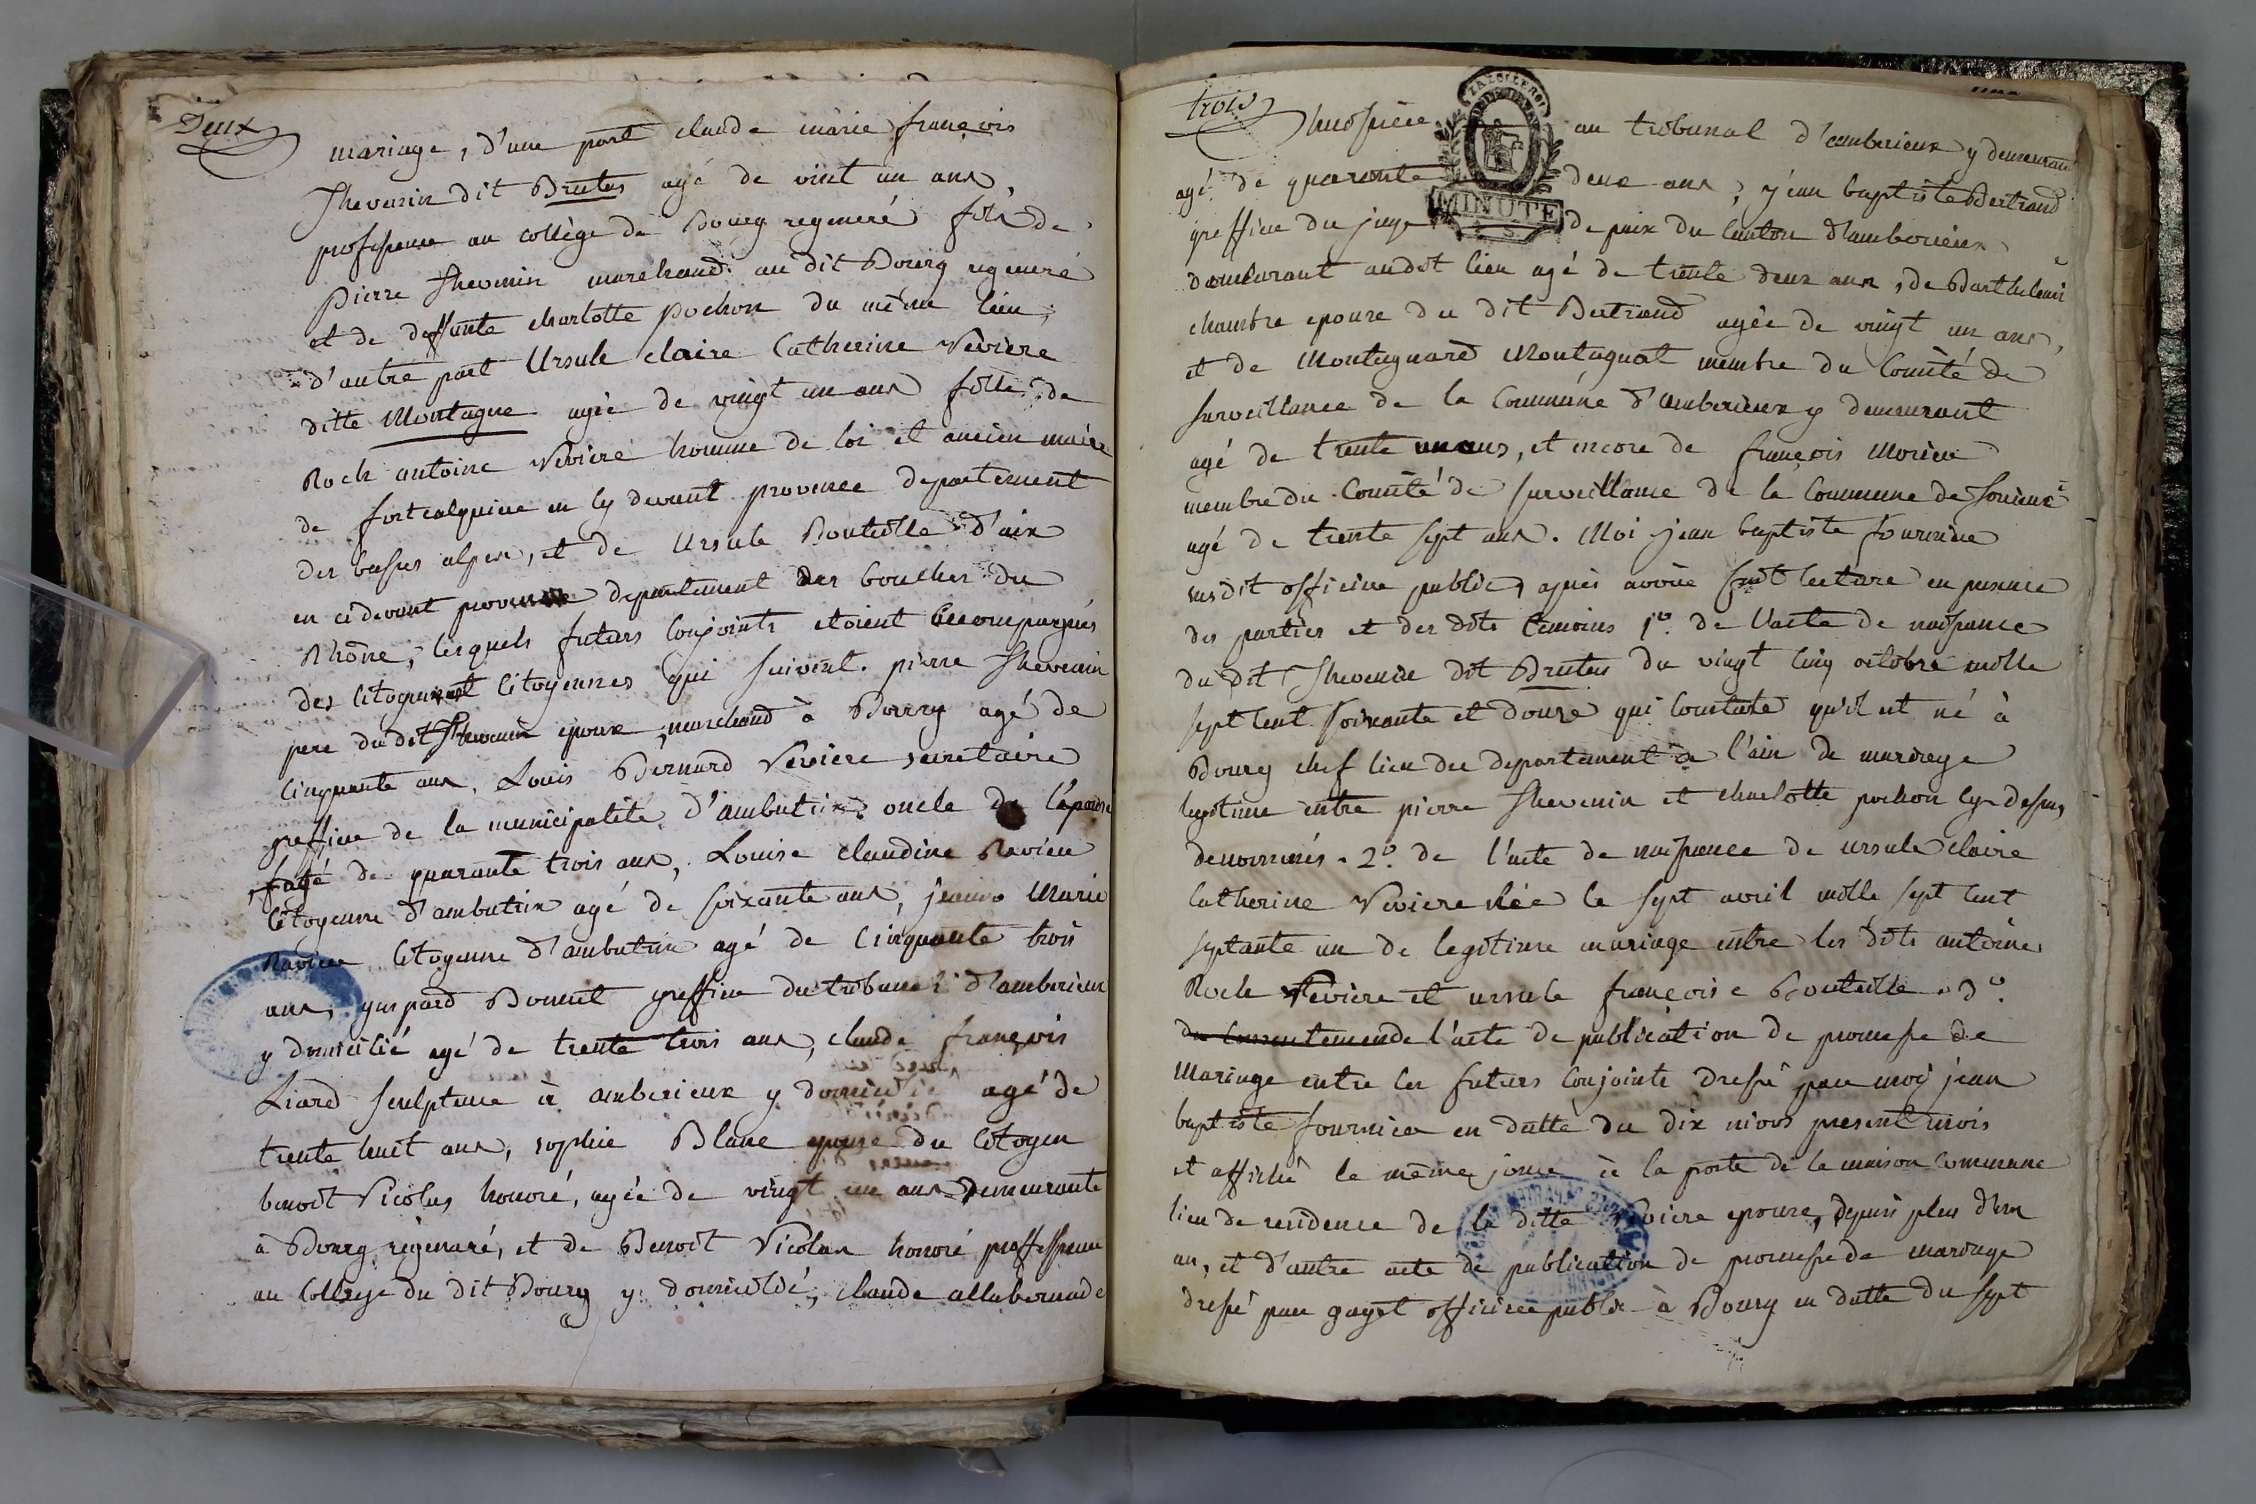 Deux
mariage, d'une part claude marie françois
Thevenin dit Brutus agé de vint un ans,
professeur au collège de Bourg regeneré fils de
pierre Thevenin marchand au dit Bourg regeneré
et de deffunte charlotte pochon du même lieu,
d'autre part Ursule claire Catherine Viviere
ditte Montagne agée de vingt un ans fille de
Roch antoine Viviere homme de loi et ancien maire
de fortcalquier en cy devant provence departement
des basses alpes, et de Ursule Bouteille d'aix
en cidevant provence departement des bouches du
Rhône, lesquels futurs conjoints etoient accompagnés
des citoyens et citoyennes qui suivent. pierre Thevenin
pere du dit Thevenin epoux, marchand à Bourg agé de
cinquante ans, Louis Bernard Viviere secretaire
greffier de la municipalité d'ambutrix oncle de l'épouse
agé de quarante trois ans, Louise claudine Ravier
citoyenne d'ambutrix agé de soixante ans, jeanne Marie
Ravier citoyenne d'ambutrix agé de cinquante trois
ans, gaspard Bonnet greffier du tribunal d'amberieux
y domicilié agé de trente trois ans, claude françois
Liard sculpteur à amberieux y domicilié agé de
trente huit ans, sophie Blanc epouse du Citoyen
benoit Nicolas honoré, agée de vingt un ans demeurante
à Bourg régénéré, et de Benoit Nicolas honoré proffesseur
au College du dit Bourg y domicilié, claude allabernade
trois
huissier au tribunal d'amberieux y demeurant
agé de quarante deux ans, jean baptiste Bertrand
greffier du juge de paix du canton d'amberieux
demeurant audit lieu agé de trente deux ans, de Barthelemi
chambre epouse du dit Bertrand agée de vingt un ans,
et de Montagnard Montagnat membre du Comité de
surveillance de la Commune d'amberieux y demeurant
agé de trente un ans, et encore de françois Morier
membre du Comité de surveillance de la Commune de
agé de trente sept ans. Moi jean baptiste fournier
susdit officier public, après avoir fait lecture en presence
des parties et des dits temoins 1º. de l'acte de naissance
du dit Thevenin dit Brutus du vingt cinq octobre mille
sept cent soixante et douze qui constate qu'il est né à
Bourg chef lieu du departement de l'ain de mariage
legitime entre pierre Thevenin et charlotte pochon cy-dessus
denommés. 2º. de l'acte de naissance de ursule claire
Catherine Viviere née le sept avril mille sept cent
septante un de legitime mariage entre les dits antoine
Roch Viviere et ursule françoise Bouteille. 3º.
du consentement de l'acte de publication de promesse de
Mariage entre les futurs conjoints dressé par moy jean
baptiste fournier en datte du dix nivos present mois
et affiché le même jour à la porte de la maison commune
lieu de residence de la ditte Viviere epouse, depuis plus d'un
an, et d'autre acte de publication de promesse de mariage
dressé par gayet officier public à Bourg en datte du sept
MINUTE